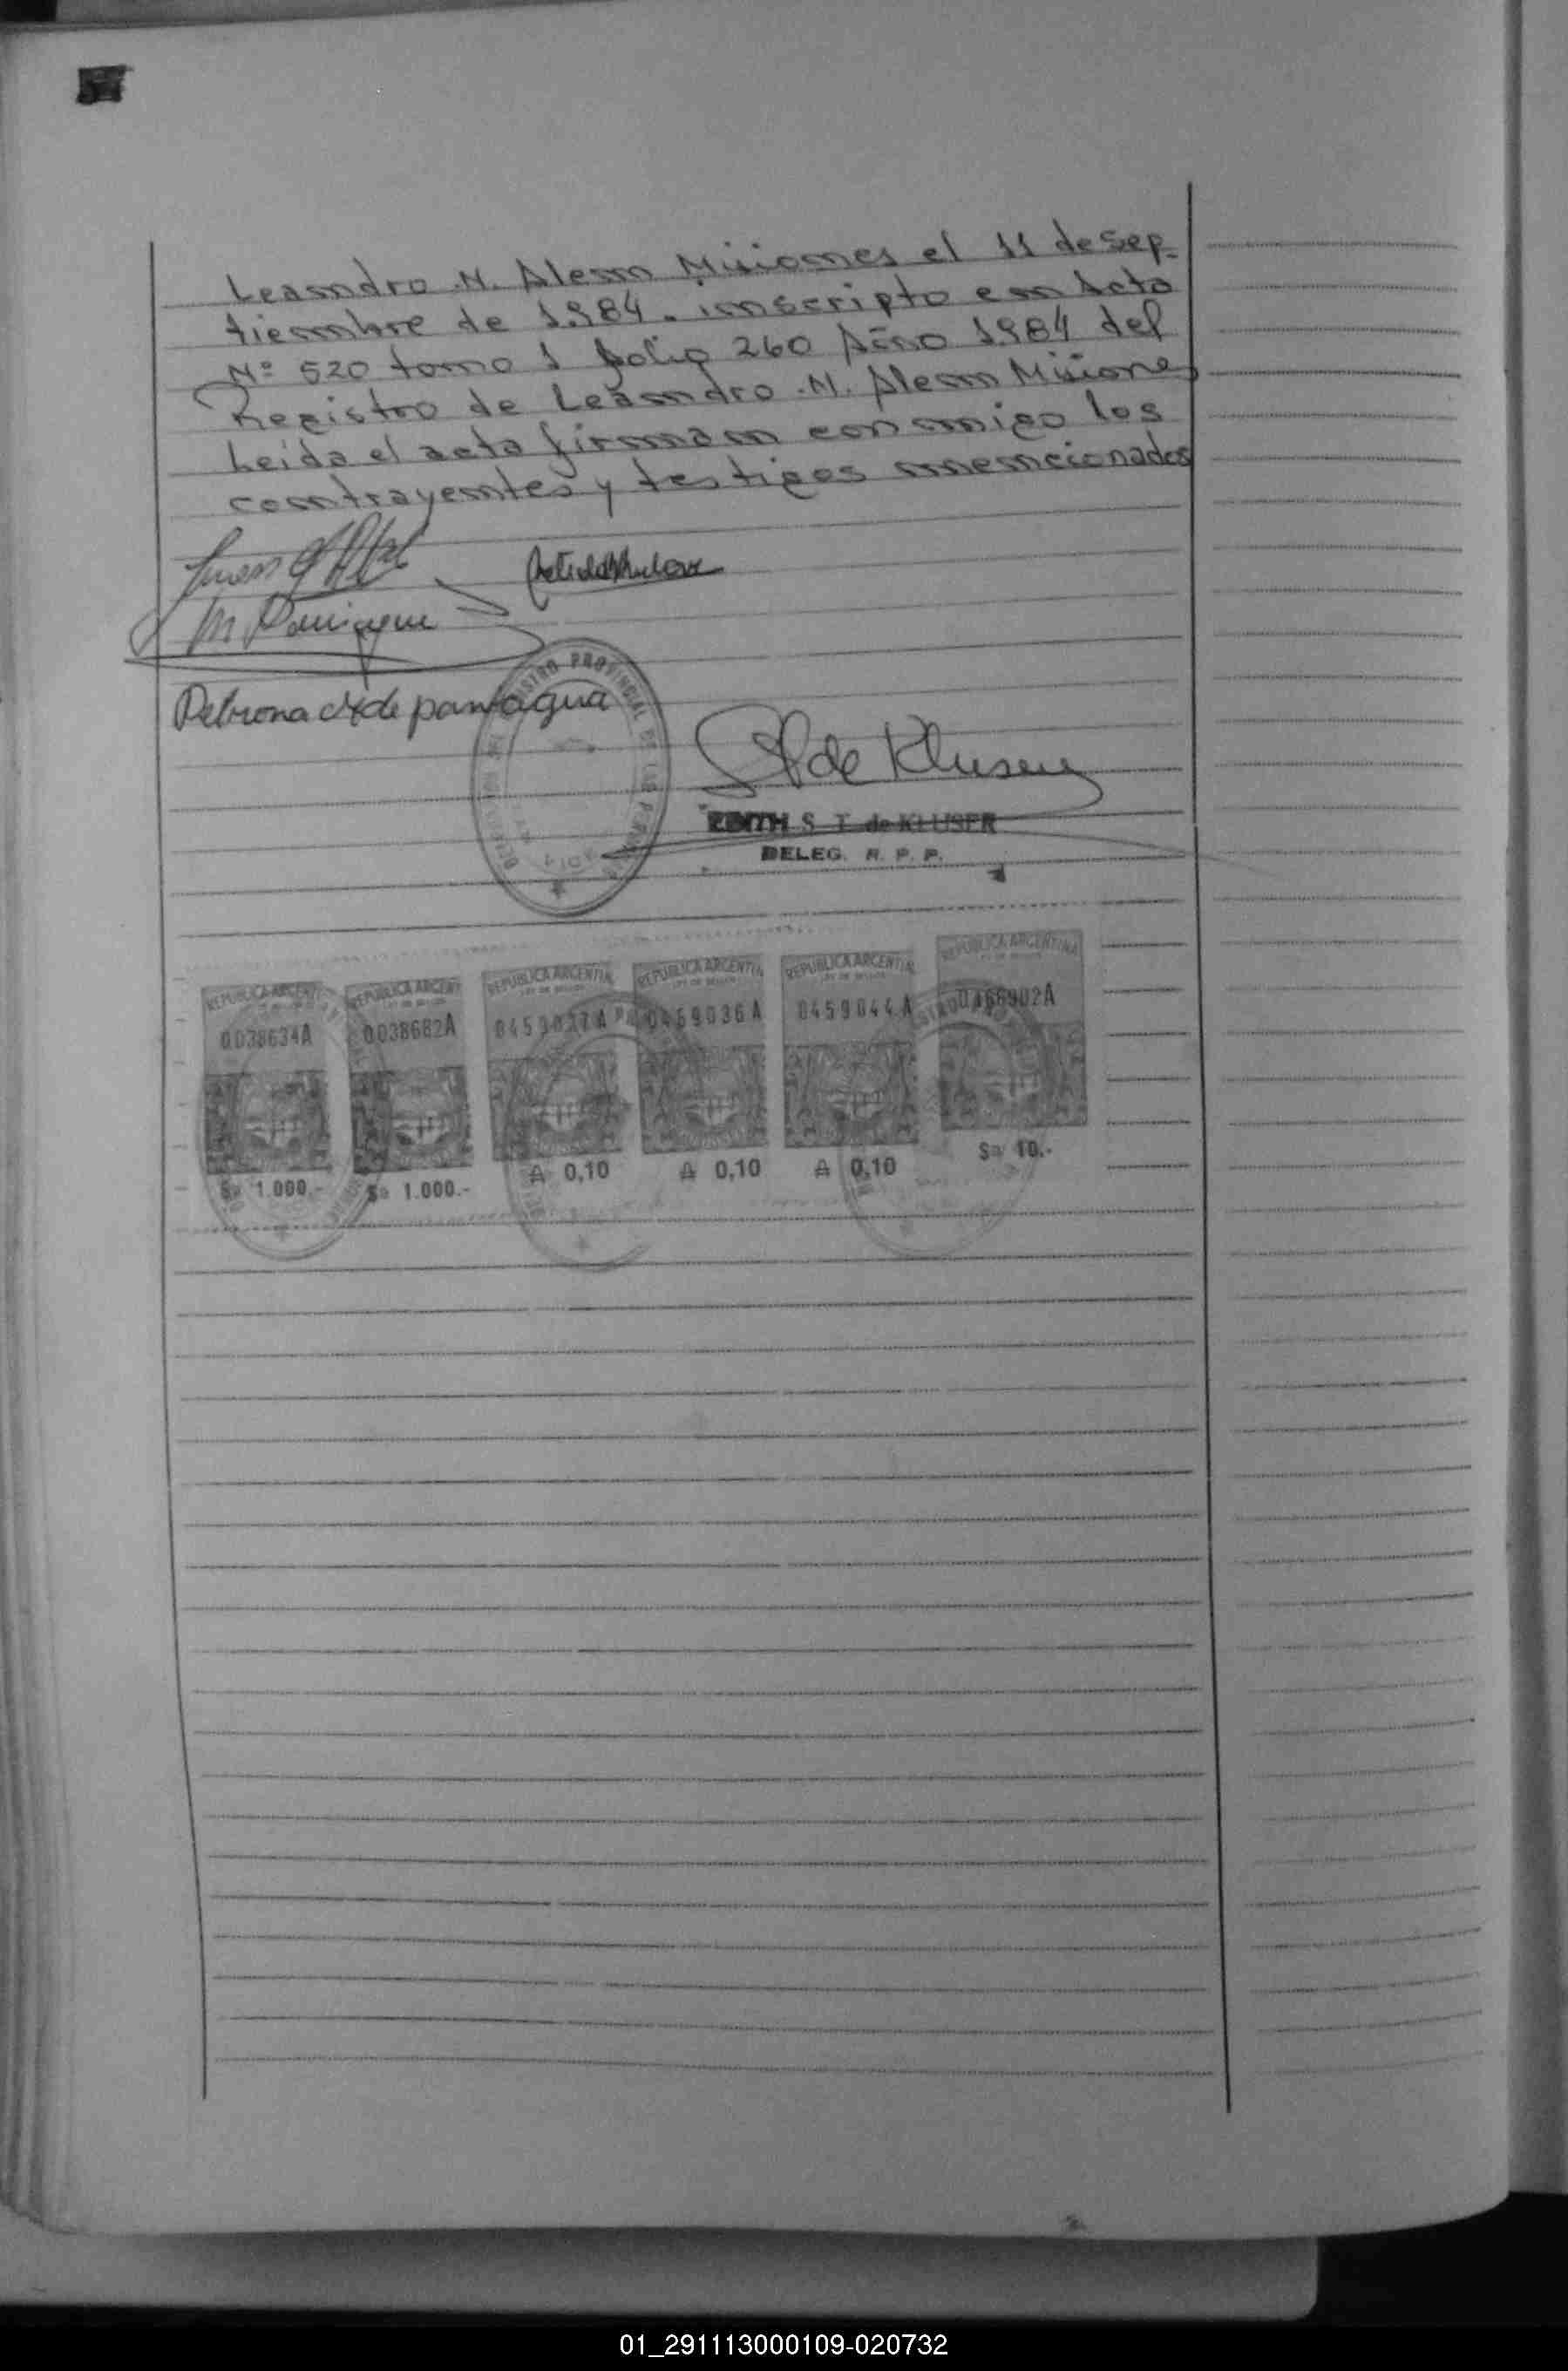 Leandro .N. Alem Misiones el 11 de Sep-
tiembre de 1.984. inscripto en Acta
Nº 520 tomo 1 folio 260 Año 1984 del
Registro de Leandro .N. Alem Misiones
Leida el acta firman conmigo los
contrayentes y testigos mencionados
Juan
M
Petrona de paniagua
REGISTRO PROVINCIAL DE LAS PERSONAS
de Kluser
EDITH S. T. de KLUSER
DELEG. R. P. P.
REPUBLICA ARGENTINA REPUBLICA ARGENTINA REPUBLICA ARGENTINA REPUBLICA ARGENTINA REPUBLICA ARGENTINA REPUBLICA ARGENTINA
0038634A 0038682A 0459037A 0459036A 0459044A 0466902A
$a 1.000.- $a 1.000.- ₳ 0,10 ₳ 0,10 ₳ 0,10 $a 10.-
01_291113000109-020732